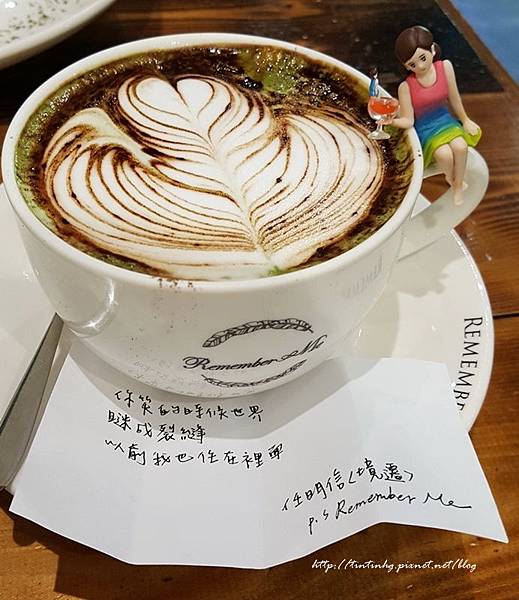 Remember Me
REMEMB
你笑的時候世界
瞇成裂縫
以前我也住在裡面
任明信〈境遷〉
p.s Remember Me
http://tintinhg.pixnet.net/blog